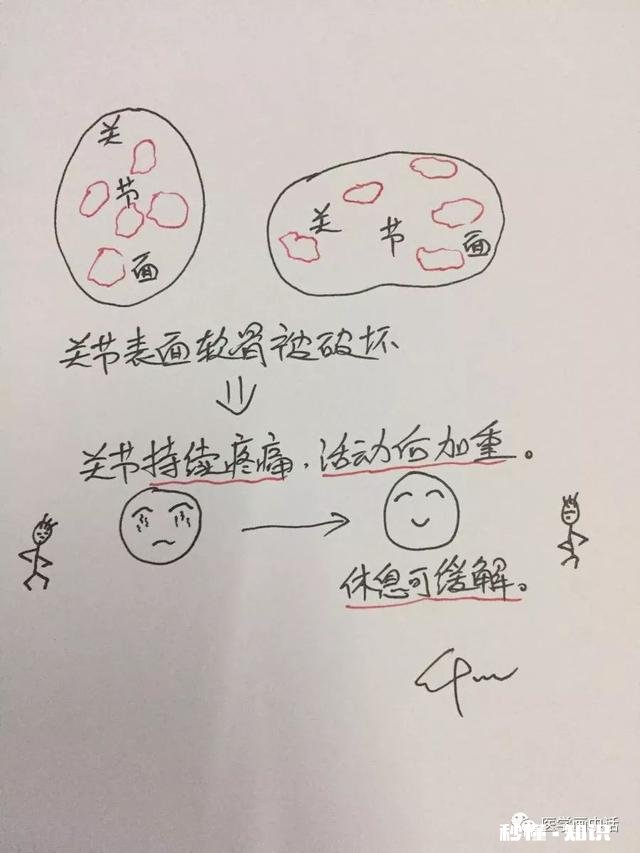 关
节
面
关 节 面
关节表面软骨被破坏
关节持续疼痛，活动后加重。
休息可缓解。
医学画中话
秒懂·知识